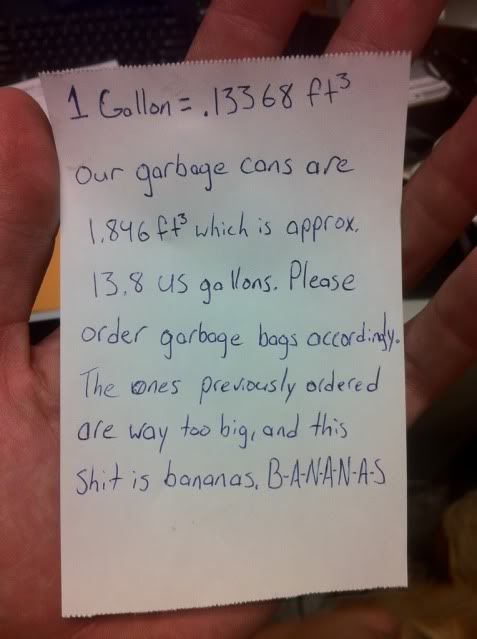 1 Gallon = .13368 ft³
Our garbage cans are
1.846 ft³ which is approx.
13.8 US gallons. Please
order garbage bags accordingly.
The ones previously ordered
are way too big, and this
shit is bananas. B-A-N-A-N-A-S